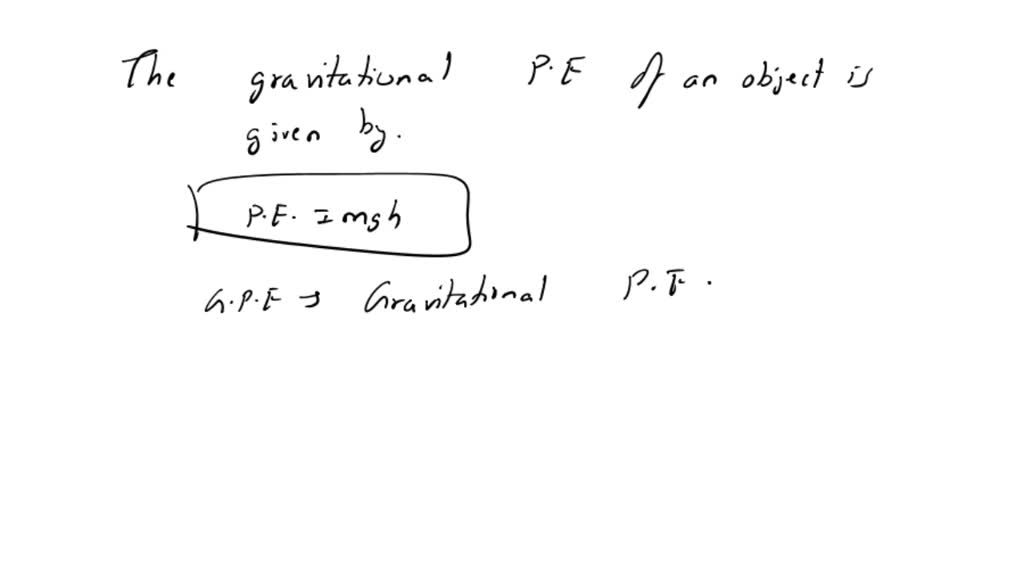 The gravitational P.E of an object is
given by.
P.E. = mgh
G.P.E → Gravitational P.E.